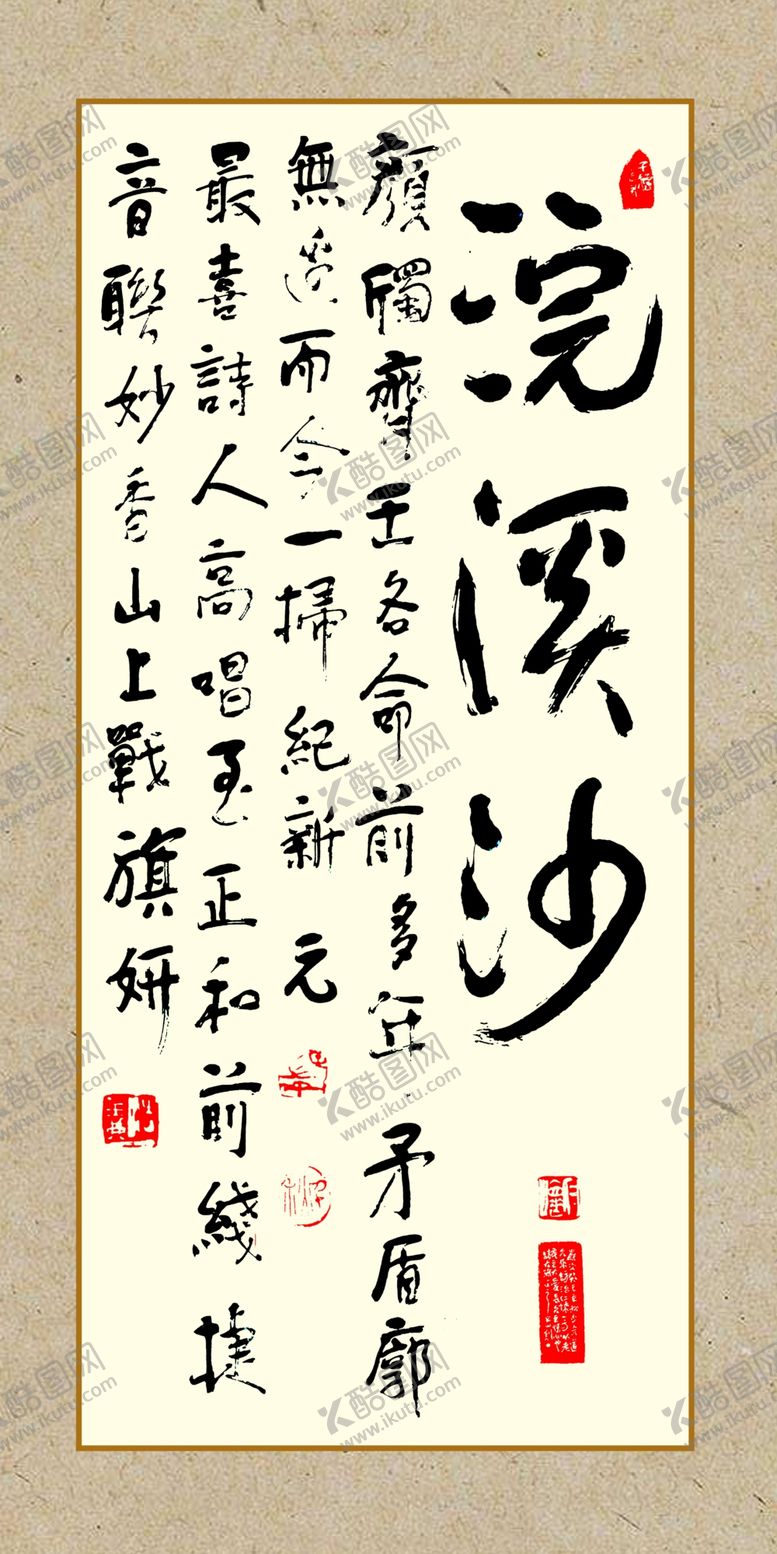 浣溪沙
顏斶齊王各命前多年矛盾廓
無邊而今一掃紀新元
最喜詩人高唱至正和前綫捷
音聯妙香山上戰旗妍
酷图网
www.ikutu.com